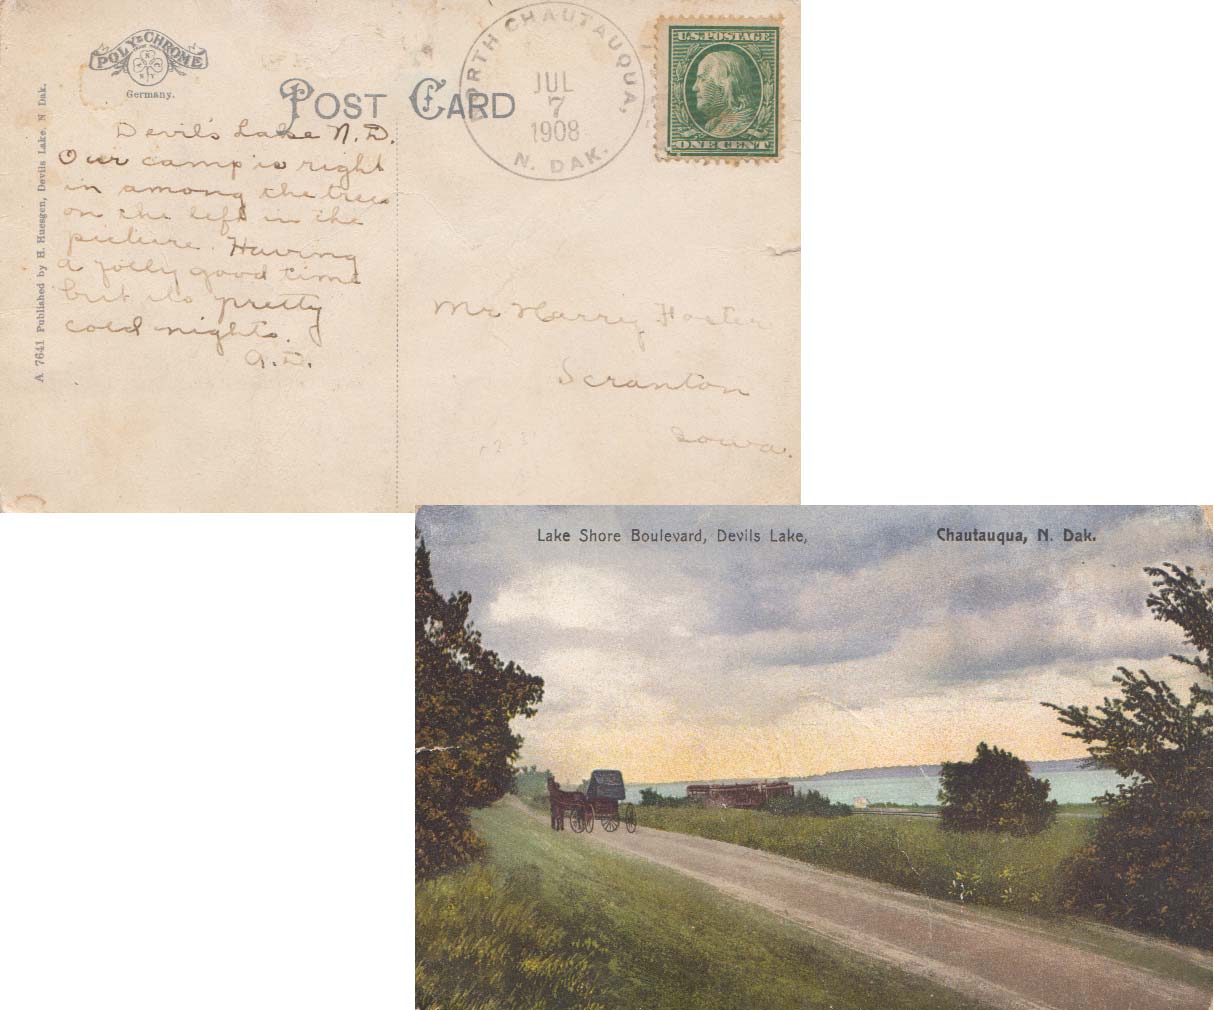 POLY-CHROME
Germany.
POST CARD
NORTH CHAUTAUQUA,
JUL
7
1908
N. DAK.
U.S.POSTAGE
ONE CENT
A 7641 Published by H. Huesgen, Devils Lake. N Dak.
Devil's Lake N.D.
Our camp is right
in among the trees
on the left in the
picture. Having
a jolly good time
but its pretty
cold nights.
A.D.
Mr Harry Foster
Scranton
Iowa.
Lake Shore Boulevard, Devils Lake, Chautauqua, N. Dak.